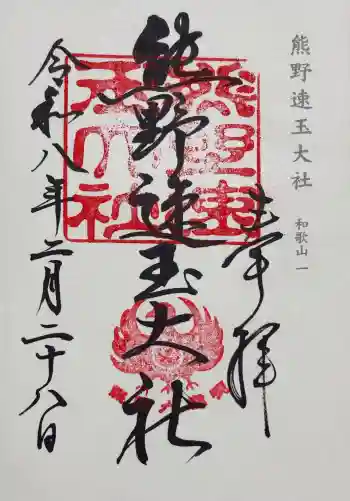 熊野速玉大社
和歌山 一
奉拝
熊野速玉大社
令和八年二月二十八日